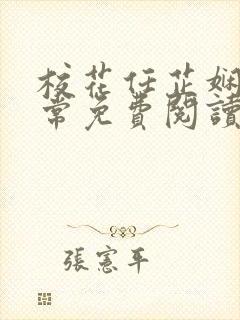 校花任芷嫻
常免費閱讀
張憲平